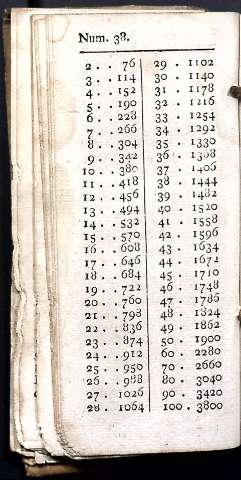 Num. 38.
2 . . 76
3 . . 114
4 . . 152
5 . . 190
6 . . 228
7 . . 266
8 . . 304
9 . . 342
10 . . 380
11 . . 418
12 . . 456
13 . . 494
14 . . 532
15 . . 570
16 . . 608
17 . . 646
18 . . 684
19 . . 722
20 . . 760
21 . . 798
22 . . 836
23 . . 874
24 . . 912
25 . . 950
26 . . 988
27 . . 1026
28 . 1064
29 . 1102
30 . 1140
31 . 1178
32 . 1216
33 . 1254
34 . 1292
35 . 1330
36 . 1368
37 . 1406
38 . 1444
39 . 1482
40 . 1520
41 . 1558
42 . 1596
43 . 1634
44 . 1672
45 . 1710
46 . 1748
47 . 1786
48 . 1824
49 . 1862
50 . 1900
60 . 2280
70 . 2660
80 . 3040
90 . 3420
100 . 3800